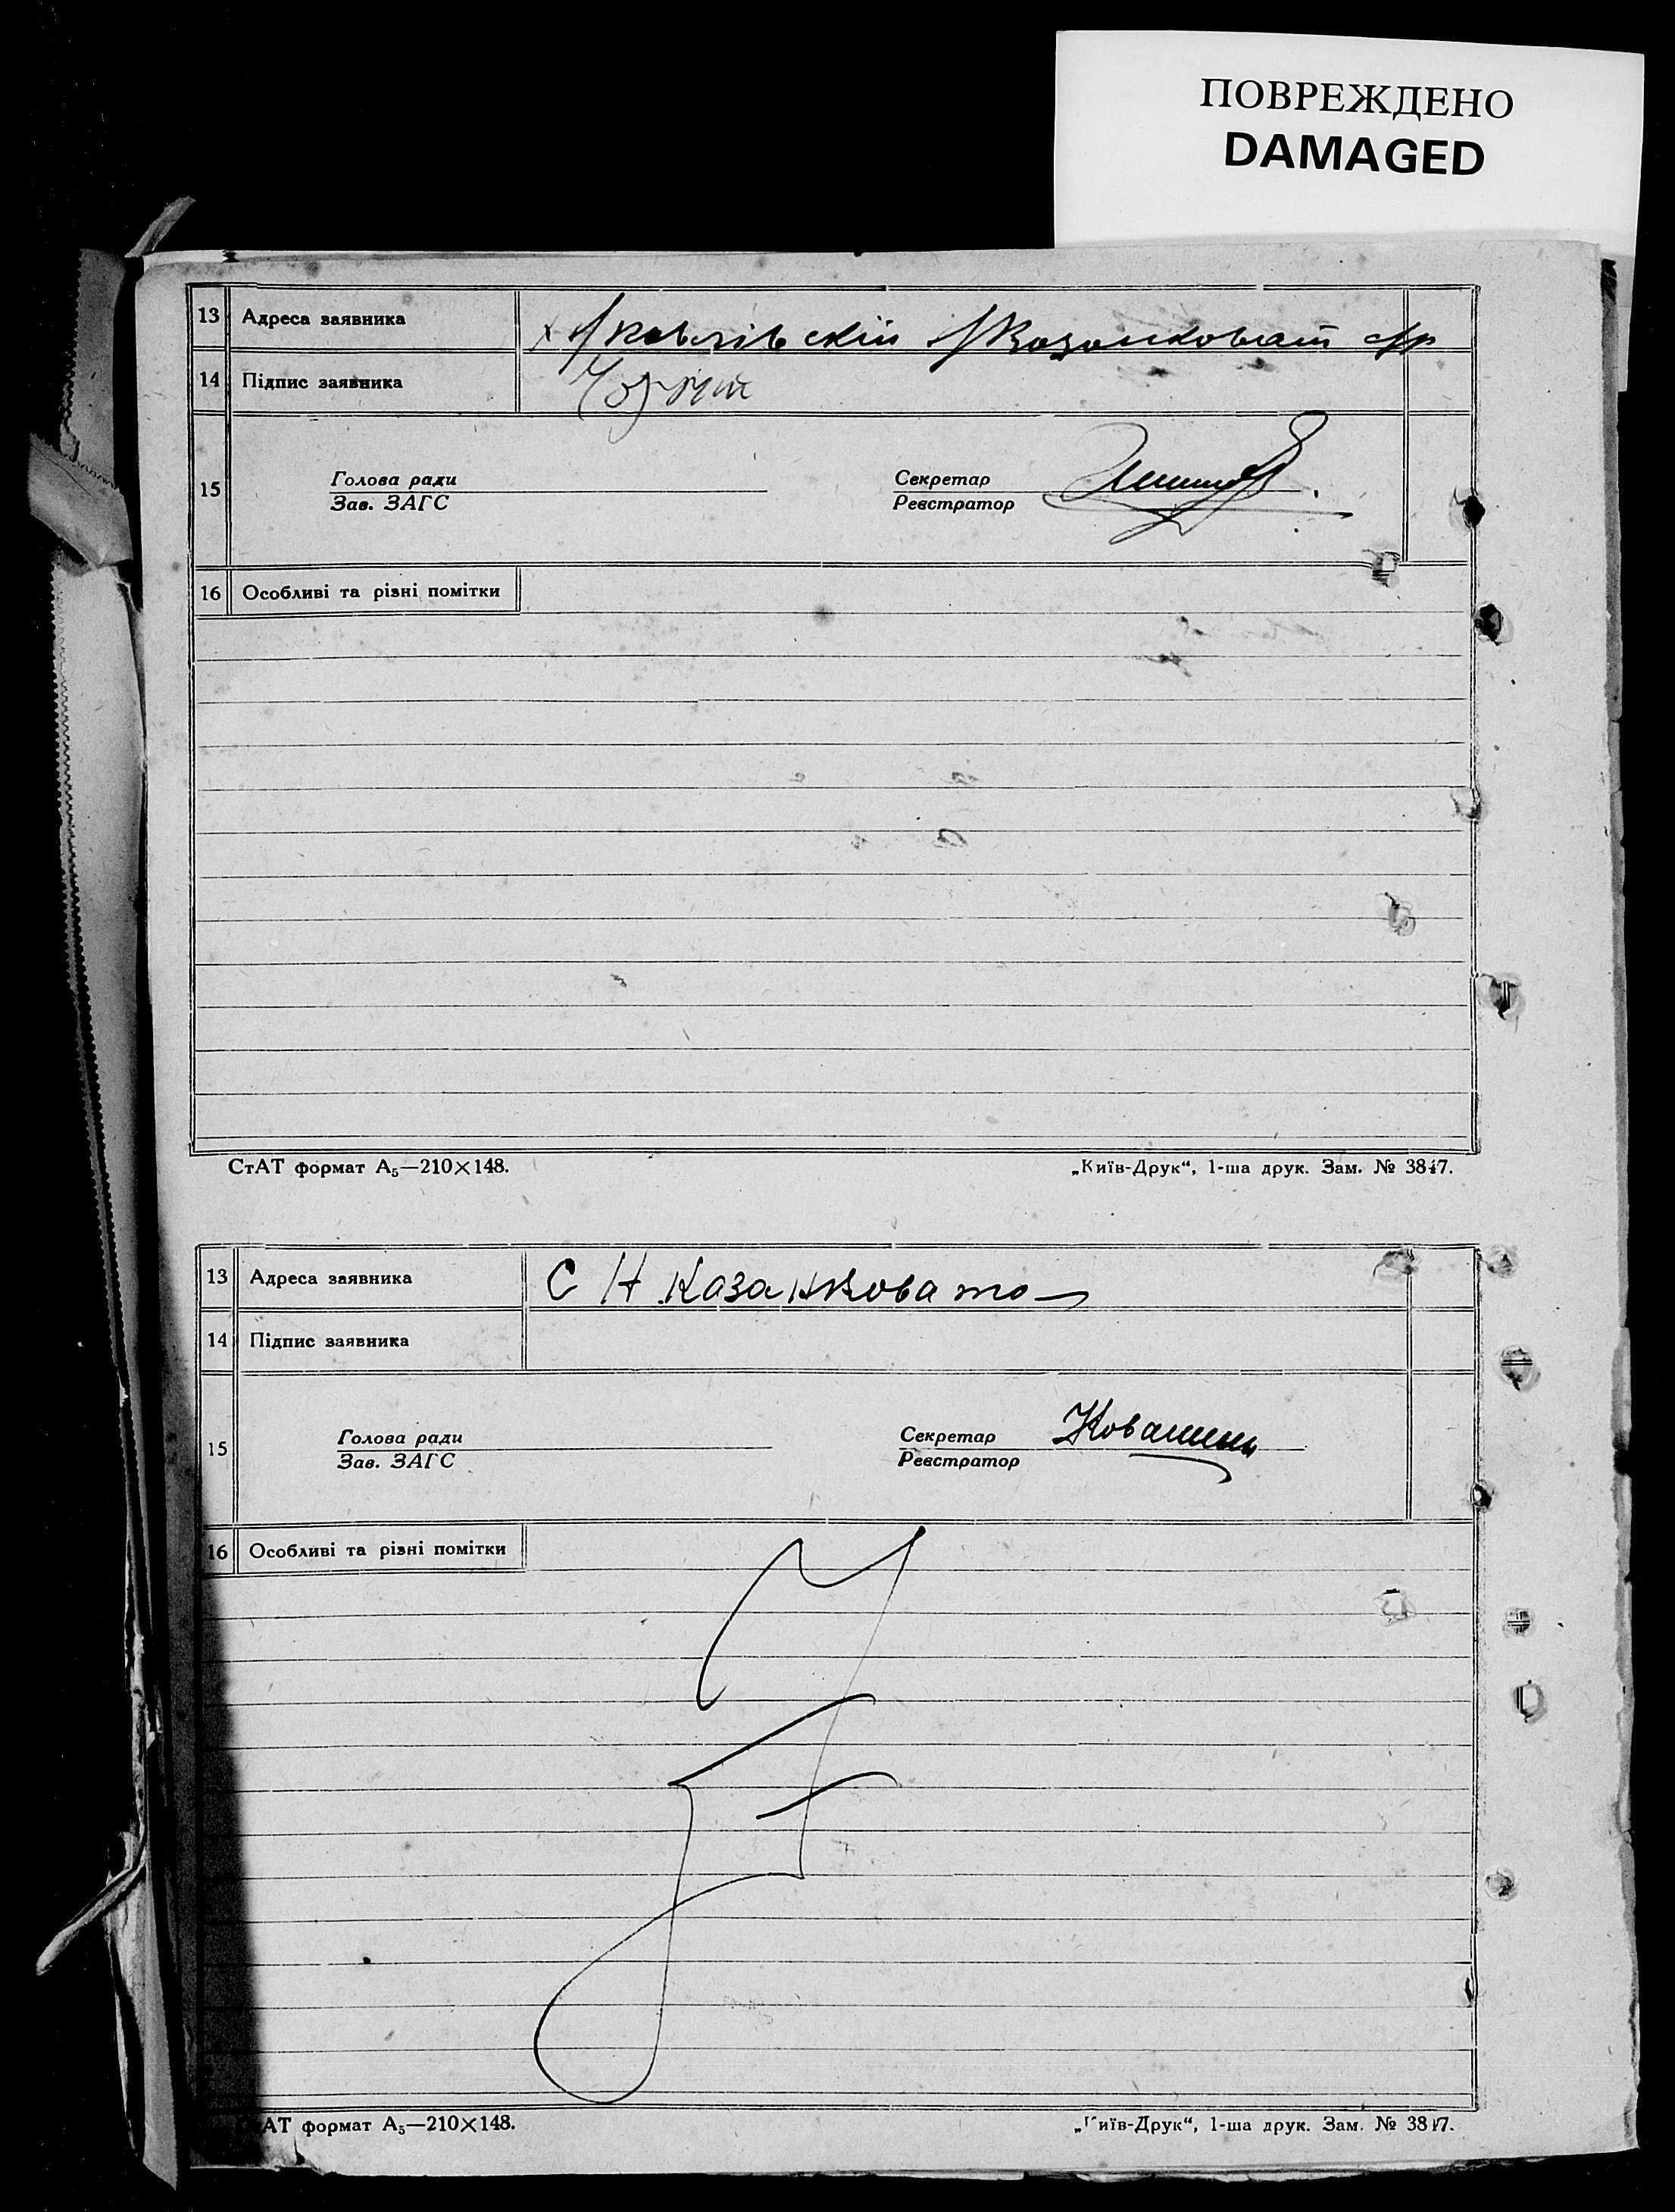 ПОВРЕЖДЕНО
DAMAGED
13 Адреса заявника
14 Підпис заявника
15 Голова ради
Зав. ЗАГС
Секретар
Реєстратор
16 Особливі та різні помітки
СтАТ формат А₅—210×148.
„Київ-Друк“, 1-ша друк. Зам. № 3847.
13 Адреса заявника С Н Казанковато
14 Підпис заявника
15 Голова ради
Зав. ЗАГС
Секретар
Реєстратор
16 Особливі та різні помітки
АТ формат А₅—210×148.
„Київ-Друк“, 1-ша друк. Зам. № 3847.